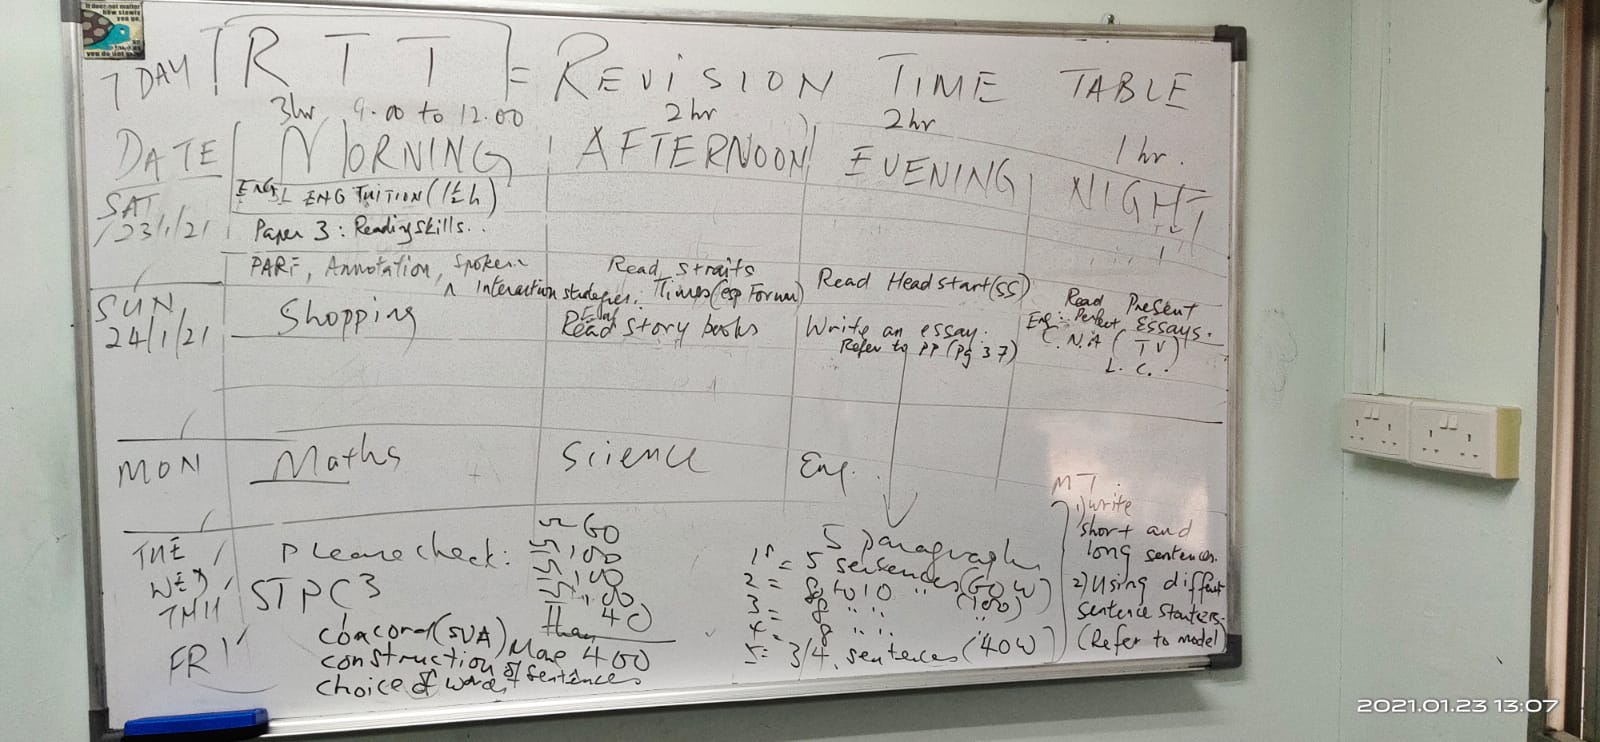 It does not matter
how slowly
you go,
so
you do not
7 DAY RTT = REVISION TIME TABLE
3hr 9.00 to 12.00 2hr 2hr
DATE MORNING AFTERNOON EVENING 1hr.
NIGHT
SAT ENG TUITION (1½h)
23/1/21 Paper 3: Reading skills..
Annotation, Spoken
Interaction strategies.
Read straits
Times (esp Forum)
Read Headstart (SS)
Read Present
Perfect Essays.
C.N.A (TV)
L. C.
SUN Shopping
24/1/21
Read story books
Write an essay.
Refer to PP (Pg 37)
MON Maths Science Eng.
TUE
WED
THU
FRI
Please check:
STPC3
concord (SVA)
construction of sentences
choice of words
60
100
100
100
40
More than 400
5 paragraphs
1 = 5 sentences (60 W)
2 = 8 to 10 " (100)
3 = 8 " "
4 = 8 " "
5 = 3/4 sentences (40W)
MT.
1) write
short and
long sentences.
2) Using different
sentence starters.
(Refer to model)
2021.01.23 13:07